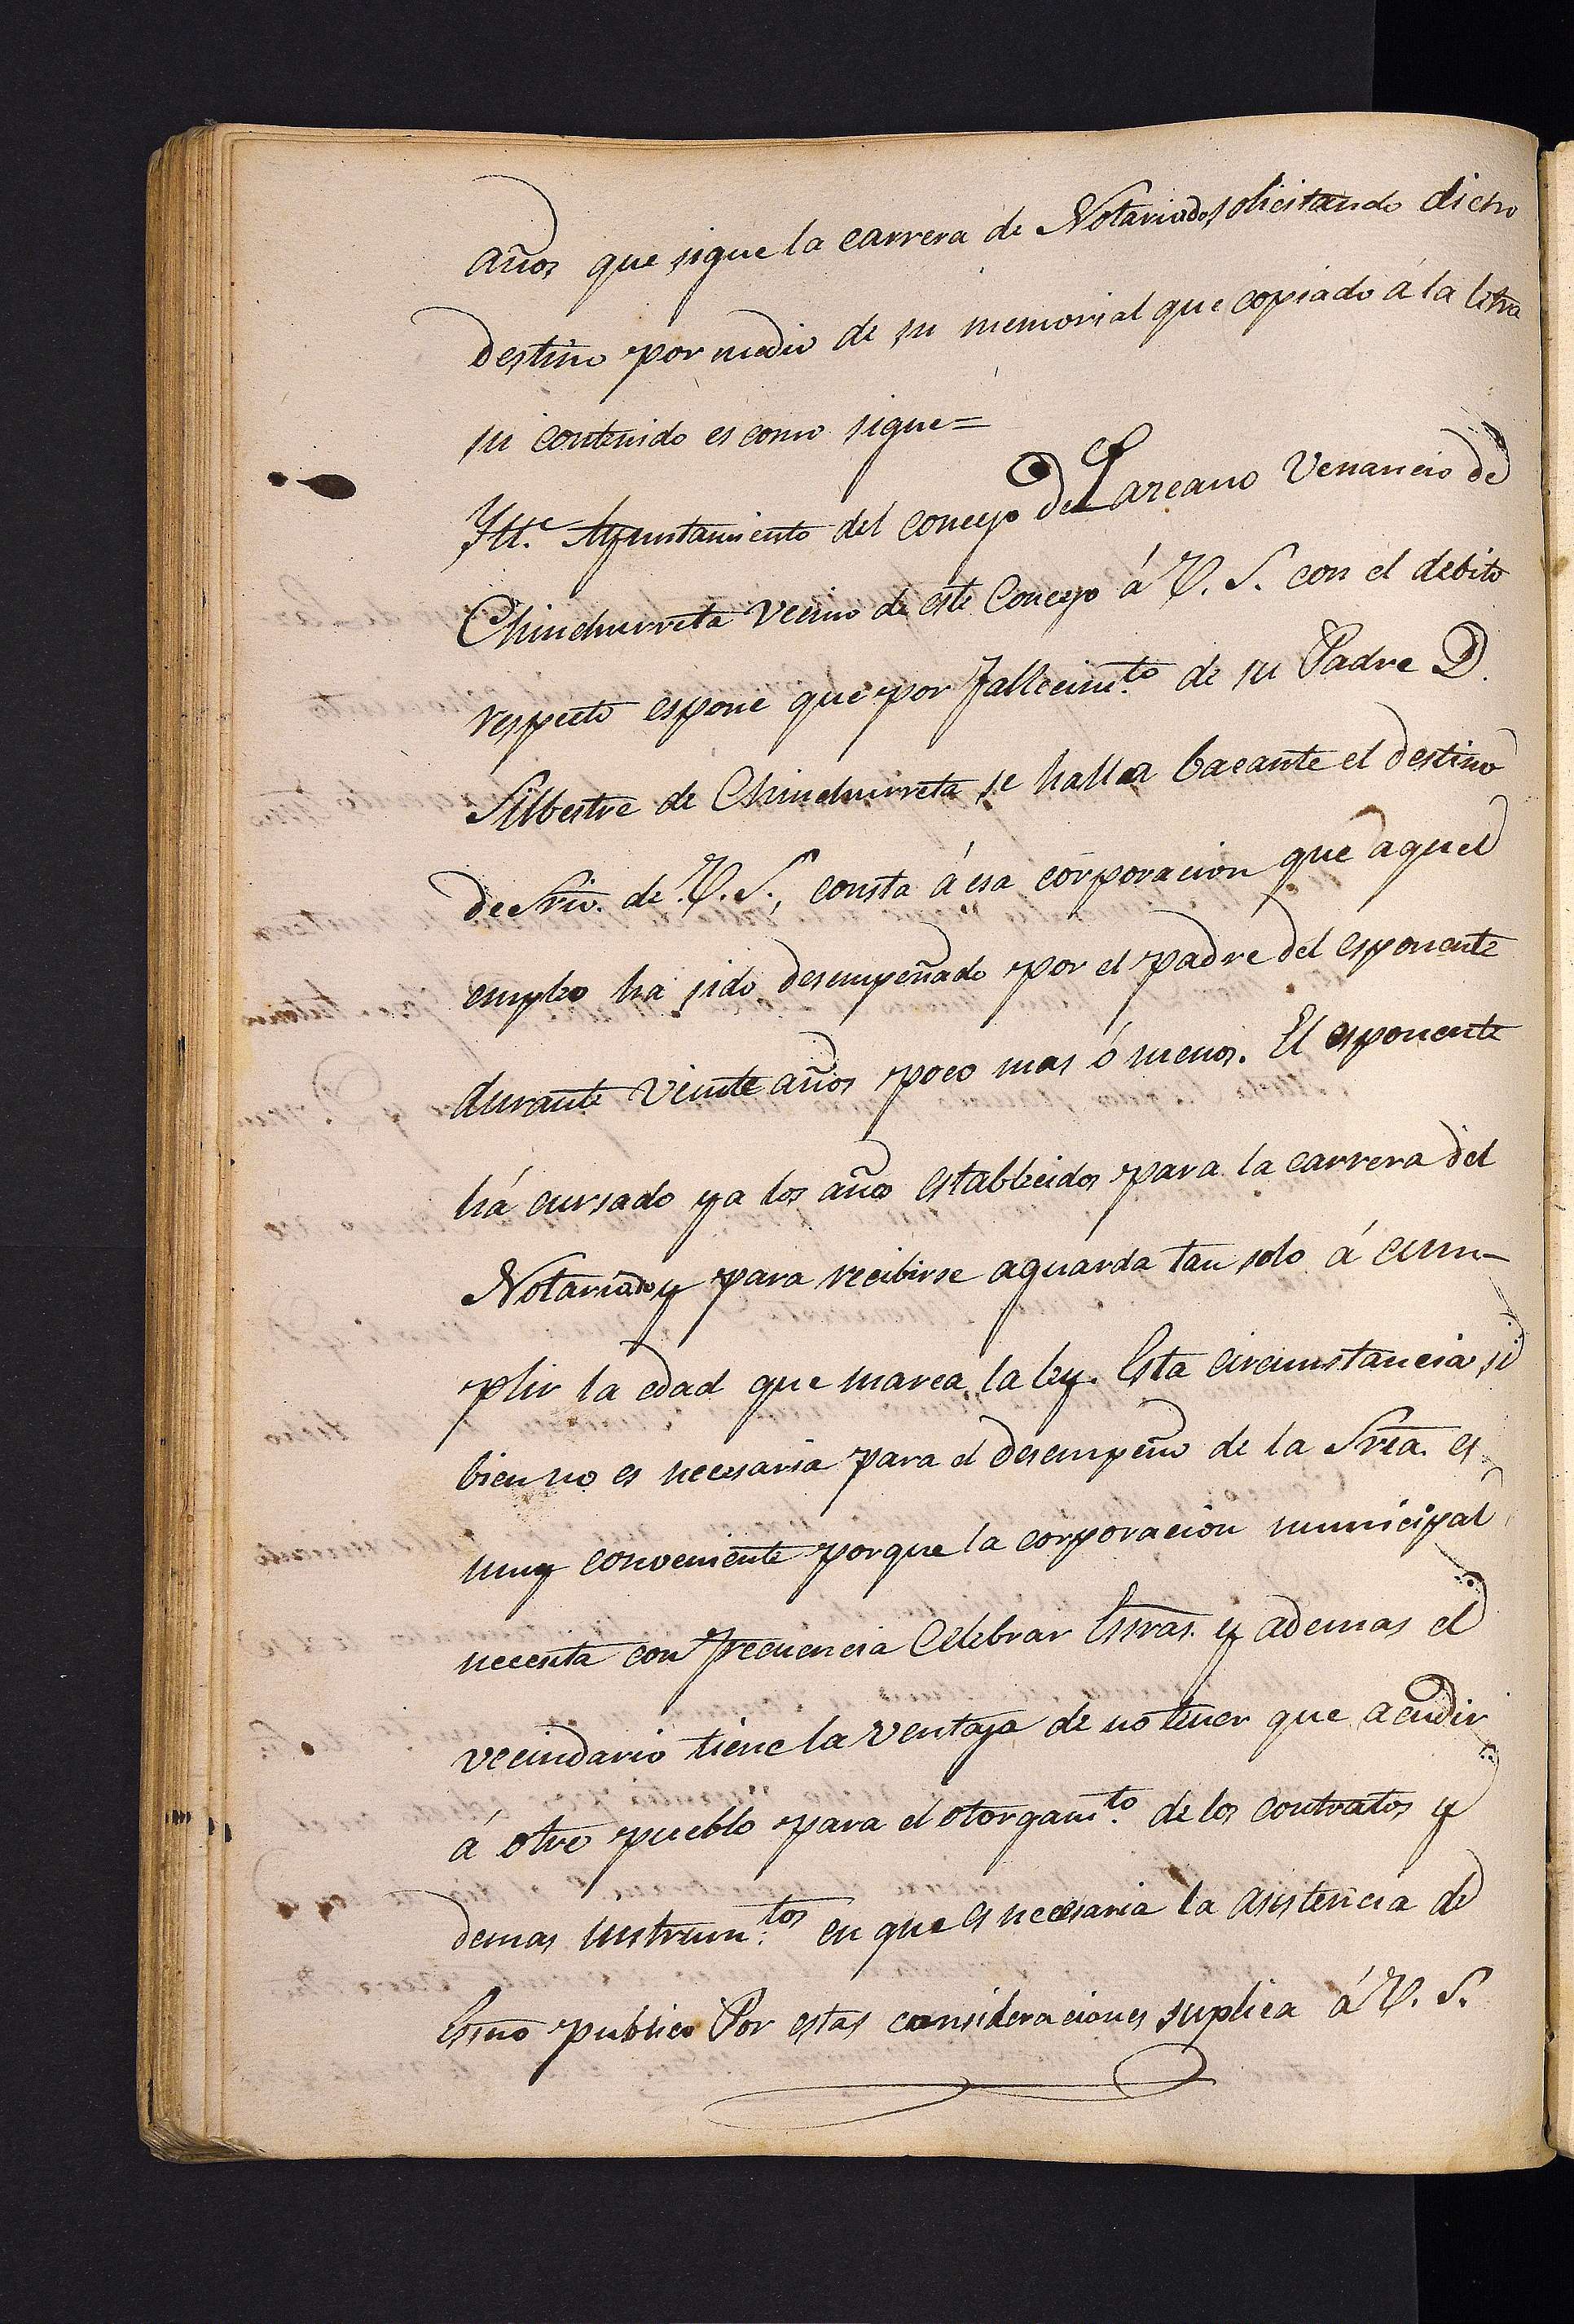 años que sigue la carrera de Notariado, solicitando dicho
destino por medio de su memorial que copiado á la letra
su contenido es como sigue=
Ytt.e Ayuntamiento del concejo de Lazcano Venancio de
Chinchurreta vecino de este Concejo á V. S. con el debito
respecto espone que por fallecim.to de su Padre D.
Silbestre de Chinchurreta se halla bacante el destino
de Srio. de V. S., consta á esa corporacion que aquel
empleo ha sido desempeñado por el padre del esponente
durante veinte años poco mas ó menos. El esponente
há cursado ya los años establecidos para la carrera del
Notariado y para recibirse aguarda tan solo á cum-
plir la edad que marca la ley. Esta circunstancia si
bien no es necesaria para el desempeño de la Sria. es
muy conveniente porque la corporacion municipal
necesita con frecuencia Celebrar Essras. y ademas el
vecindario tiene la ventaja de no tener que acudir
á otro pueblo para el otorgam.to de los contratos y
demas instrum.tos en que es necesaria la asistencia de
Essno publico Por estas consideraciones suplica á V. S.